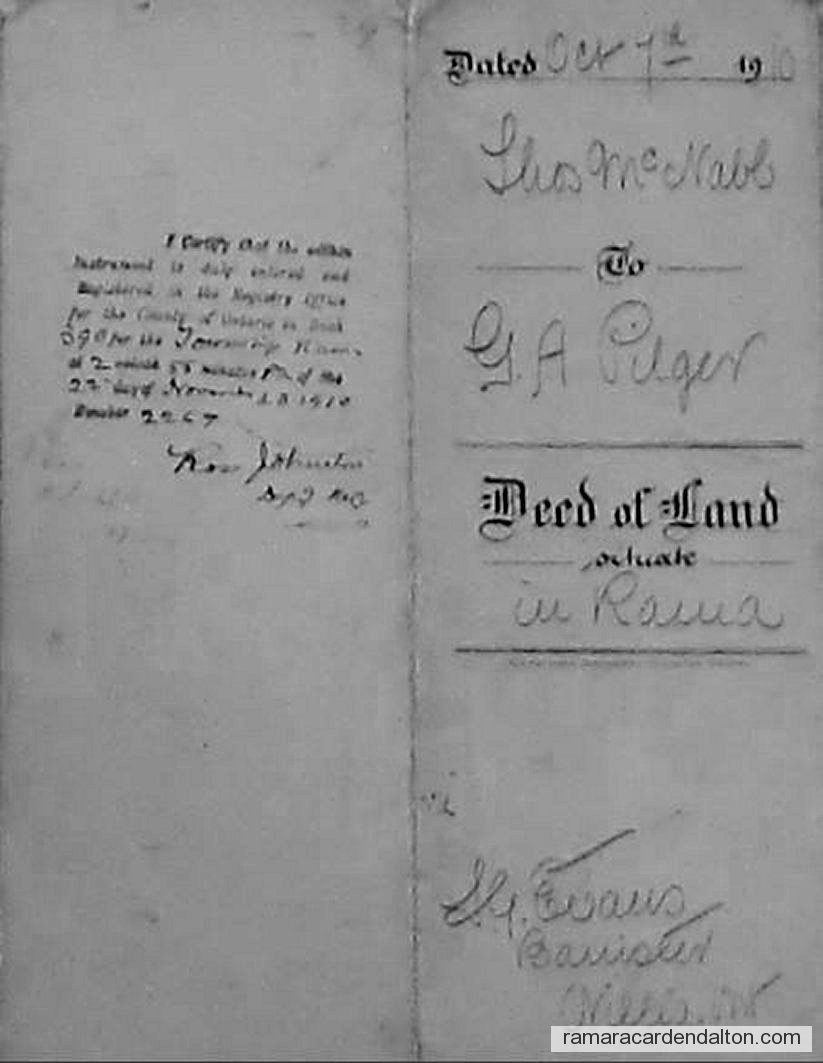 I Certify that the within
Instrument is duly entered and
Registered in the Registry Office
for the County of Ontario in Book
for the Township Rama
at 2 o'clock 55 minutes P.M. of the
22 day of November A.D. 1910
Number 2267
Johnston
Dep'y Reg
Dated Oct 7th 1910
Thos McNabb
To
G. A Pilger
Deed of Land
situate
in Rama
Evans
Barrister
ramaracardendalton.com